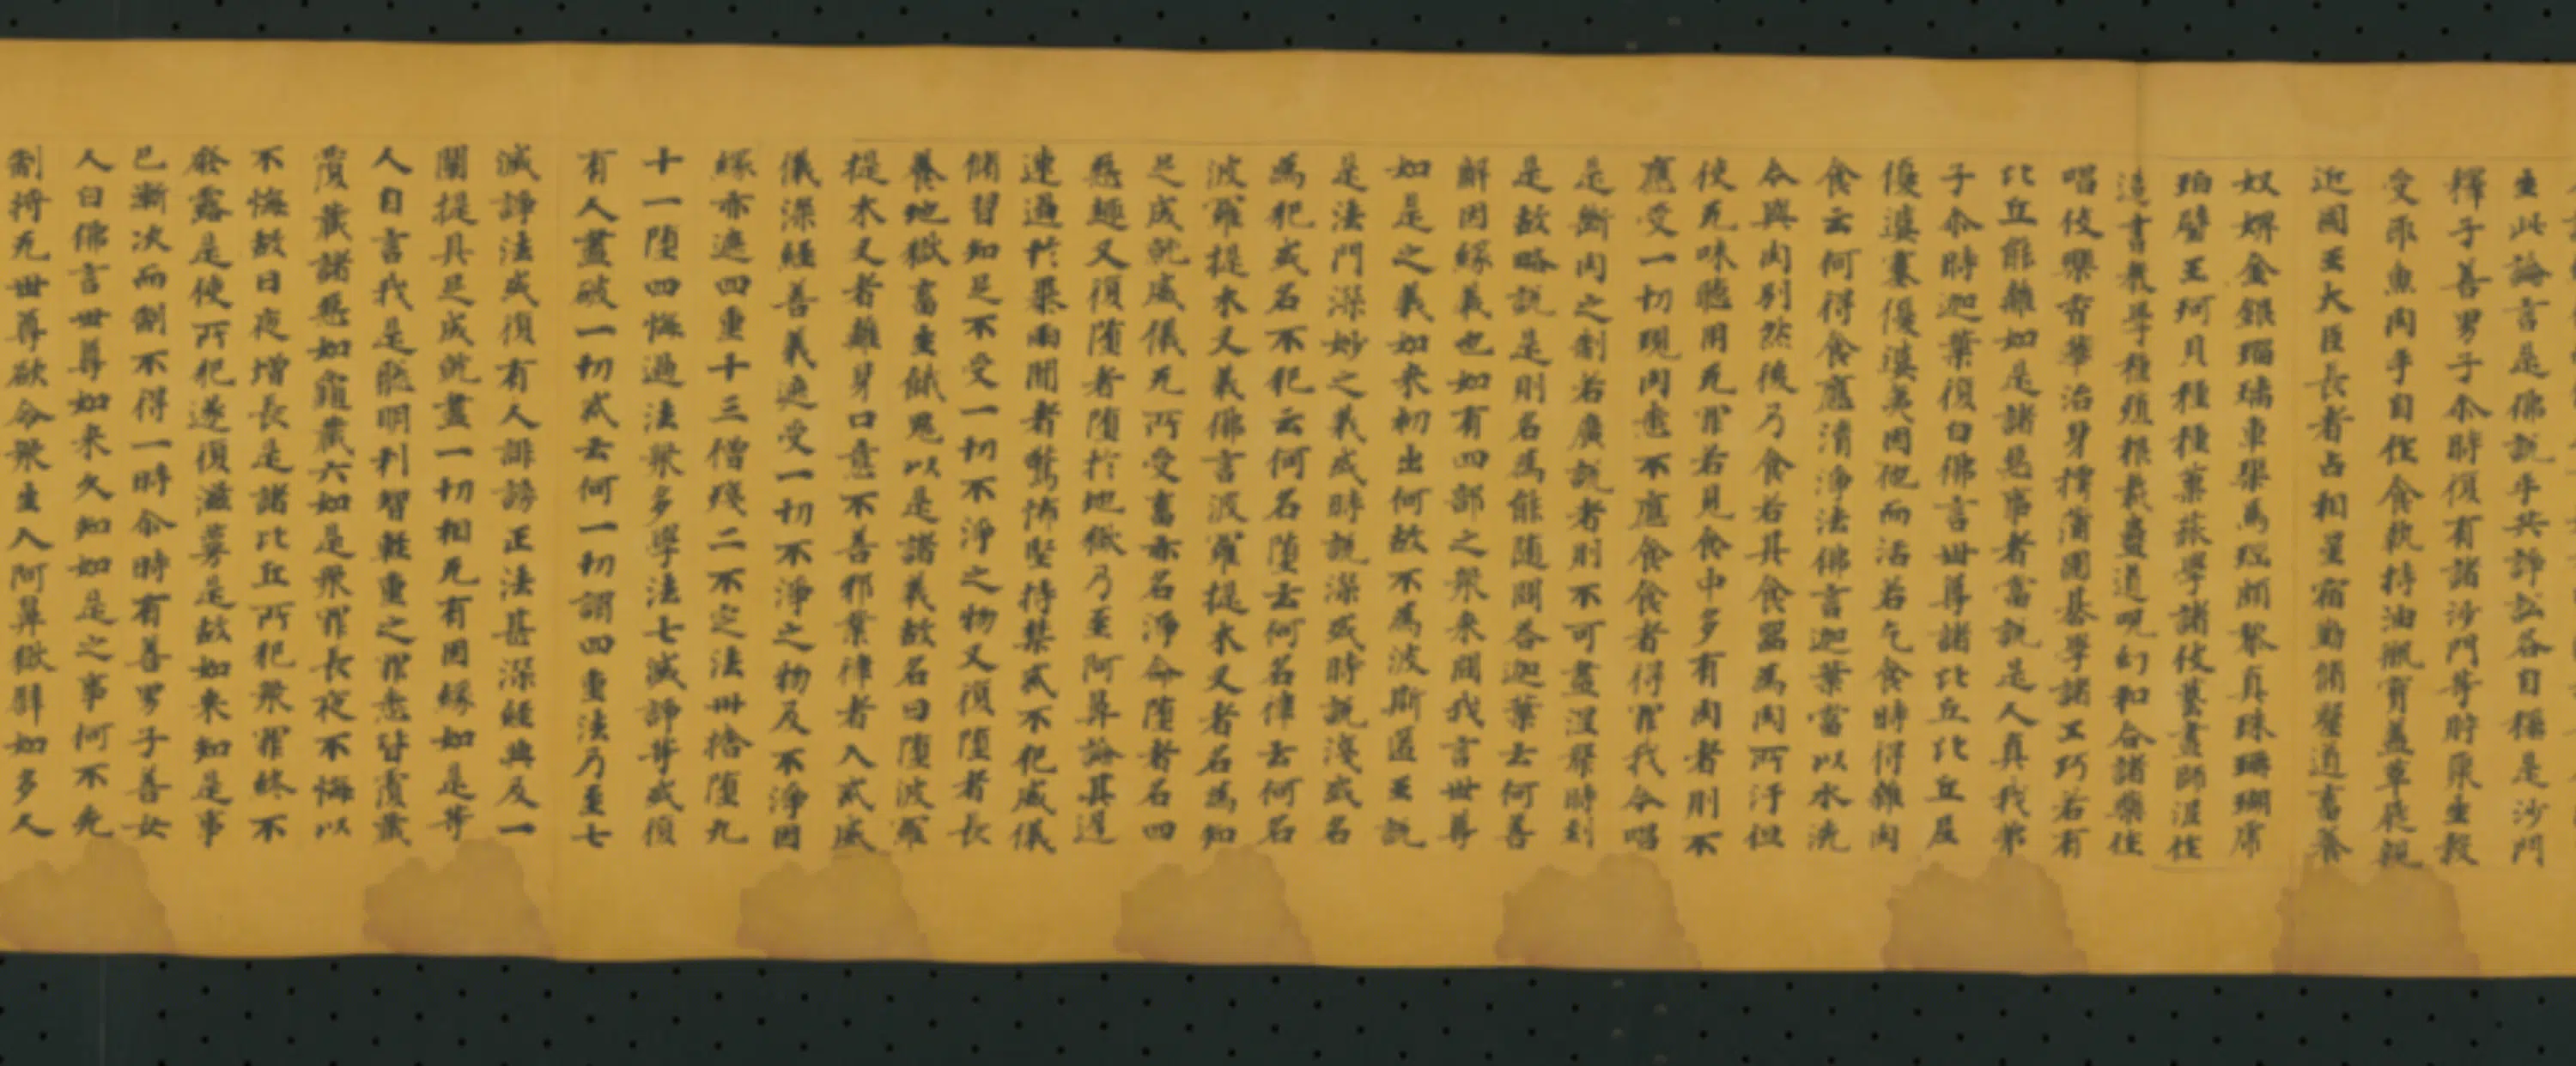 生此論言是佛説乎共諍訟各自稱是沙門
釋子善男子尒時復有諸沙門等貯聚生穀
受取魚肉手自作食執持油瓶寳蓋革屣親
近國王大臣長者占相星宿勤脩醫道畜養
奴婢金銀瑠璃車𤦲馬瑙頗黎真珠珊瑚虎
珀璧玉珂貝種種菓蓏學諸伎藝畫師泥作
造書教學種殖根栽蠱道呪幻和合諸藥作
唱伎樂香華治身摴蒲圍碁學諸工巧若有
比丘能離如是諸惡事者當説是人真我弟
子尒時迦葉復白佛言世尊諸比丘比丘尼
優婆塞優婆夷因他而活若乞食時得雜肉
食云何得食應清淨法佛言迦葉當以水洗
令與肉別然後乃食若其食器為肉所汙但
使无味聽用无罪若見食中多有肉者則不
應受一切現肉悉不應食食者得罪我今唱
是斷肉之制若廣説者則不可盡涅槃時到
是故略説是則名為能随問荅迦葉云何善
解因縁義也如有四部之衆来問我言世尊
如是之義如来初出何故不為波斯匿王説
是法門深妙之義或時説深或時説淺或名
為犯或名不犯云何名墮云何名律云何名
波羅提木叉義佛言波羅提木叉者名為知
足成就威儀无所受畜亦名淨命墮者名四
惡趣又復墮者墮於地獄乃至阿鼻論其遲
速過於暴雨聞者驚怖堅持禁戒不犯威儀
脩習知足不受一切不淨之物又復墮者長
養地獄畜生餓鬼以是諸義故名曰墮波羅
提木叉者離身口意不善邪業律者入戒威
儀深經善義遮受一切不淨之物及不淨因
縁亦遮四重十三僧殘二不定法卅捨墮九
十一墮四悔過法衆多學法七滅諍等或復
有人盡破一切戒云何一切謂四重法乃至七
滅諍法或復有人誹謗正法甚深經典及一
闡提具足成就盡一切相无有因縁如是等
人自言我是聡明利智輕重之罪悉皆覆藏
覆藏諸惡如龜藏六如是衆罪長夜不悔以
不悔故日夜增長是諸比丘所犯衆罪終不
發露是使所犯遂復滋蔓是故如来知是事
已漸次而制不得一時尒時有善男子善女
人白佛言世尊如来久知如是之事何不先
制將无世尊欲令衆生入阿鼻獄譬如多人